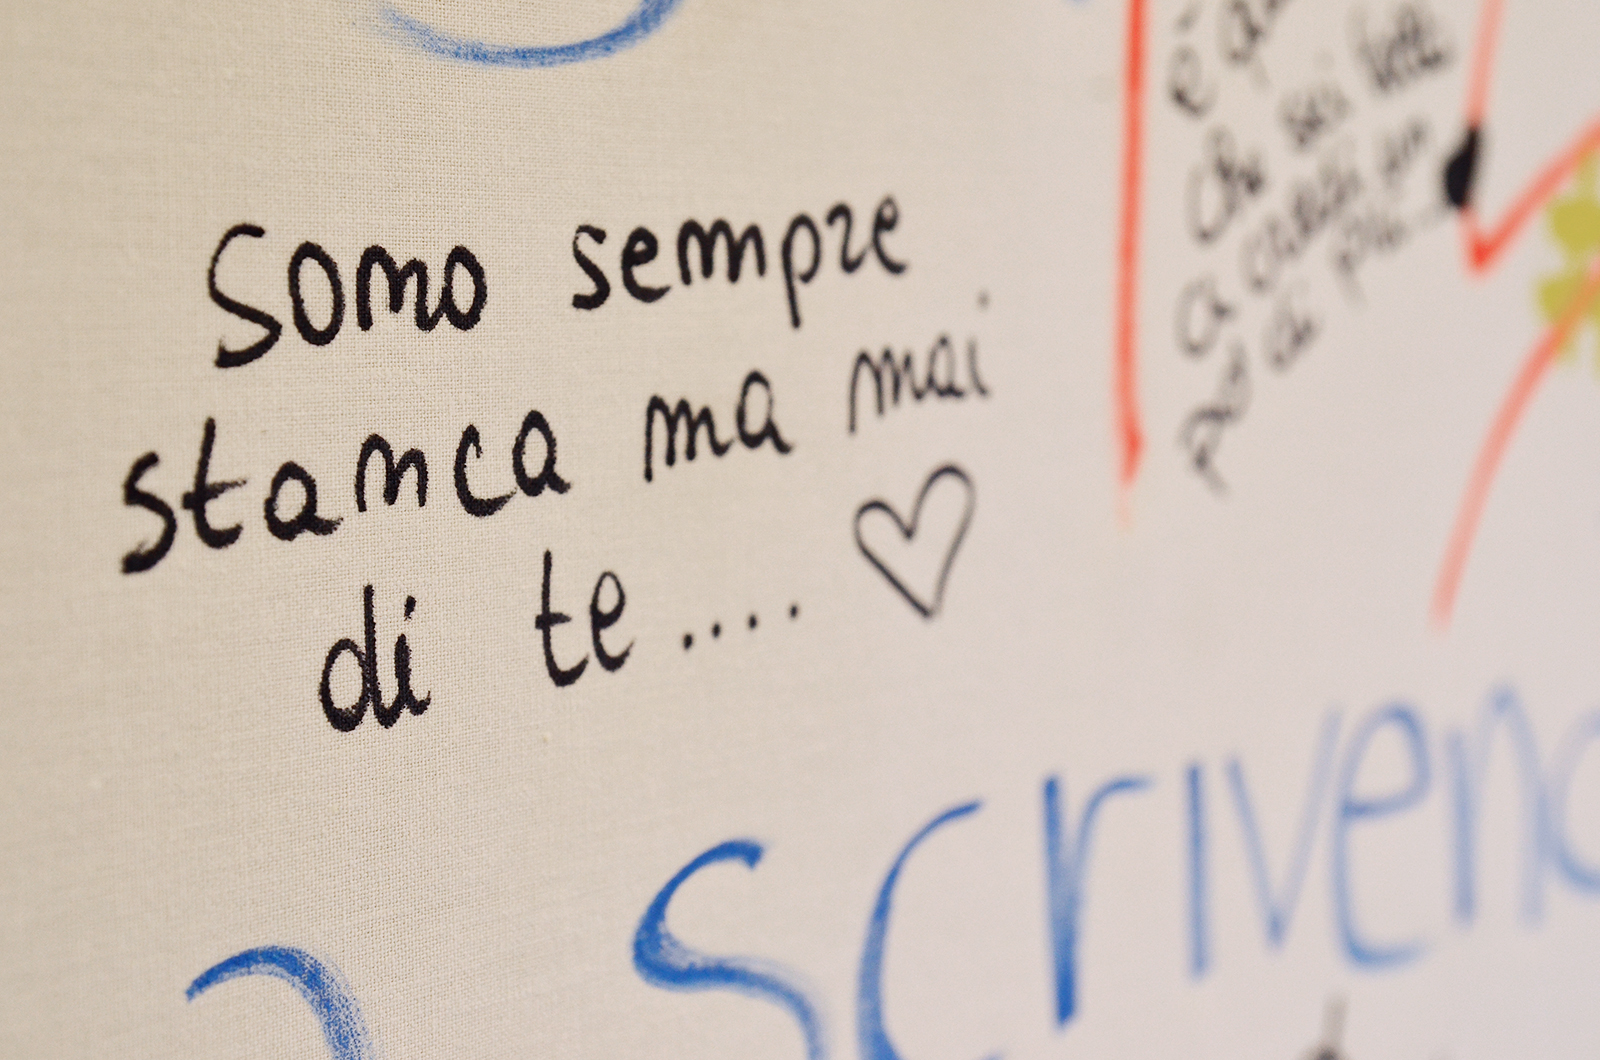 Sono sempre
stanca ma mai
di te.... ♡
è
che sei
a
di più...
Scriven